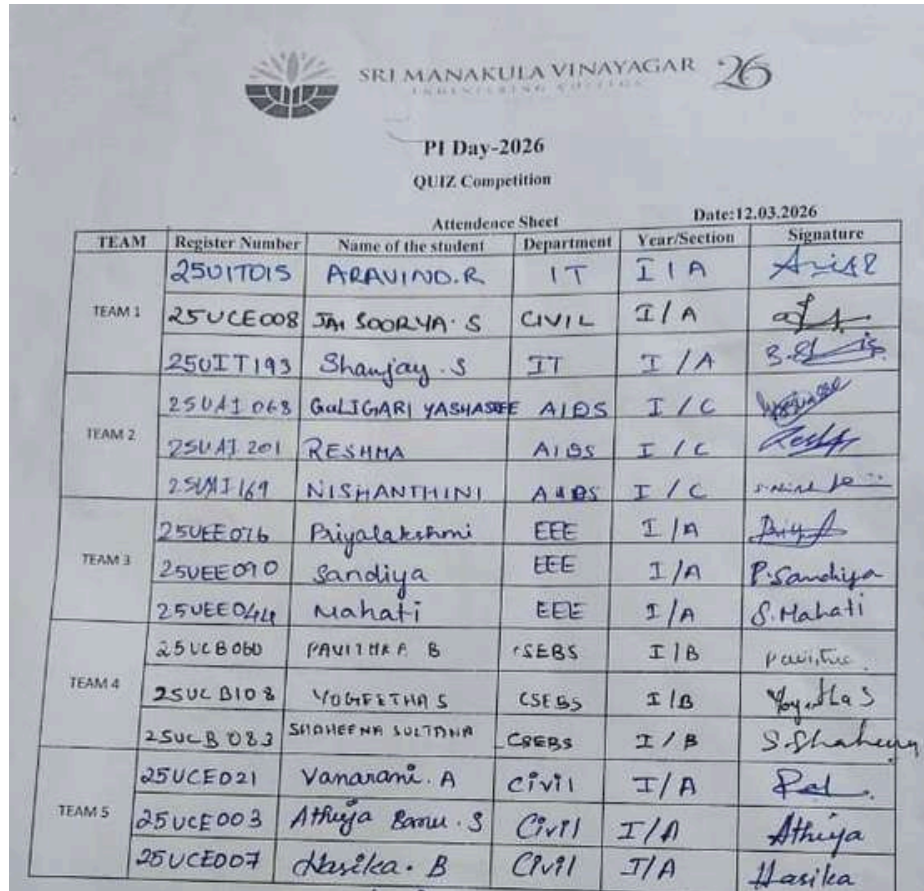 SRI MANAKULA VINAYAGAR '26
ENGINEERING COLLEGE
PI Day-2026
QUIZ Competition
Attendence Sheet Date:12.03.2026
TEAM Register Number Name of the student Department Year/Section Signature
25UIT015 ARAVIND.R IT I/A
TEAM 1 25UCE008 JAI SOORYA.S CIVIL I/A
25UIT193 Shanjay.S IT I/A
25UAI068 GULIGARI YASHASREE AIDS I/C
TEAM 2 25UAI201 RESHMA AIDS I/C
25UAI169 NISHANTHINI AIDS I/C
25UEE076 Priyalakshmi EEE I/A
TEAM 3 25UEE090 Sandiya EEE I/A P.Sandiya
25UEE044 Mahati EEE I/A S.Mahati
25UCB060 PAVITHRA B CSEBS I/B
TEAM 4 25UCB108 YOGEETHA S CSEBS I/B
25UCB083 SHAHEENA SULTANA CSEBS I/B
25UCE021 Vanarani.A Civil I/A
TEAM 5 25UCE003 Athiya Banu.S Civil I/A Athiya
25UCE007 Hasika.B Civil I/A Hasika